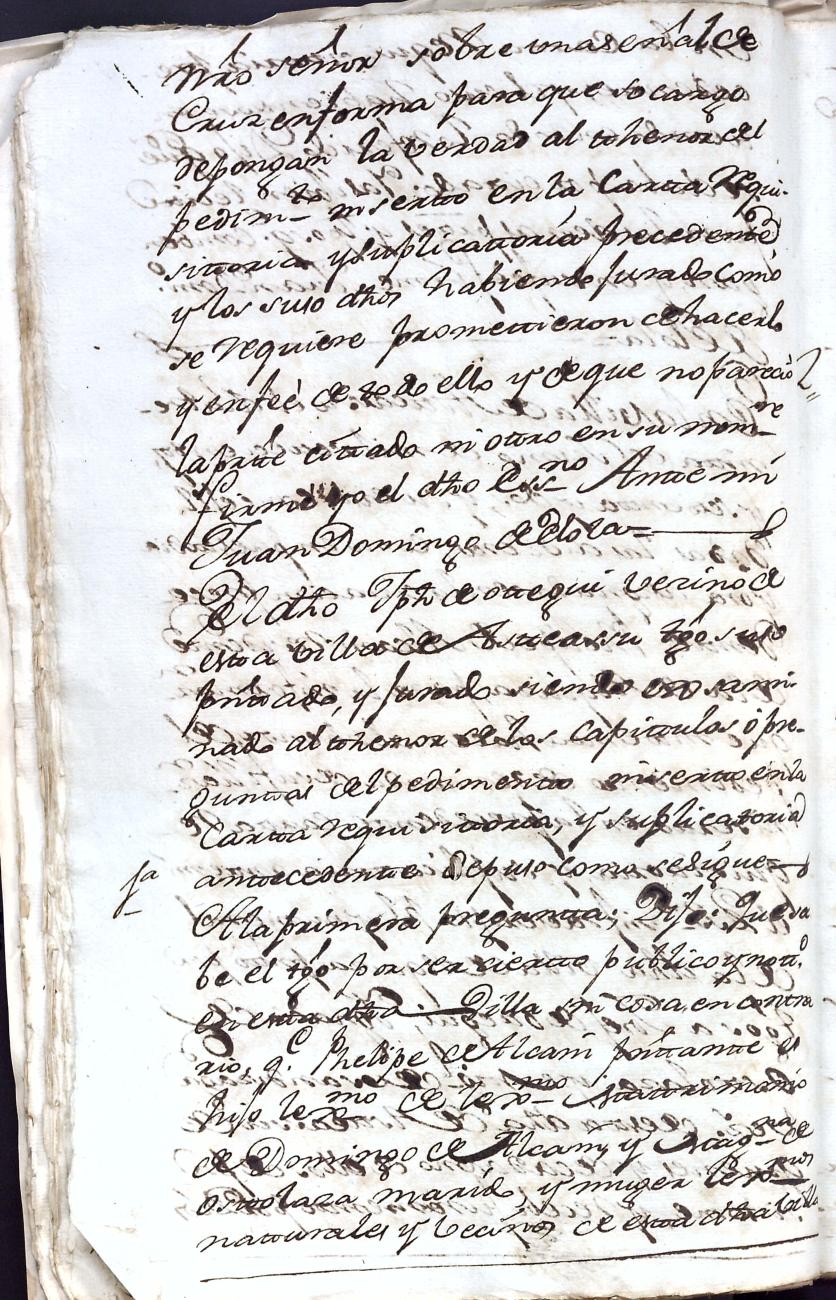 nrô señor sobre una señal de
Cruz en forma para que so cargo
depongan la verdad al thenor del
pedimto inserto en la Carta Requi-
sittoria y suplicattoria precedente
y los suso dhos habiendo Jurado como
se requiere promettieron de hacerlo
y en feè de todo ello y de que no pareciò
la prte cittada ni ottro en su nomre
firmé yo el dho Essno Antte mi
Juan Domingo de
El dho Jph de ottegui vezino de
estta villa de Astteasu tgo suso
pnttado, y Jurado siendo essami-
nado al thenor de los Capittulos ó pre-
guntas del pedimento insertto en la
Cartta requisittoria, y suplicatoria
anttecedente depuso como se sigue
1a
A la primera pregunta; Dijo: Que sa
be el tgo por ser cierto publico y nottº
en estta dha Villa sin cosa en contra
rio, q.e Phelipe de Alcain pnttante es
hijo lexmo de lexmo Mattrimonio
de Domingo de Alcain, y Magna de
osttolaza marido, y muger lexmos
naturales y vecinos de estta dha villa